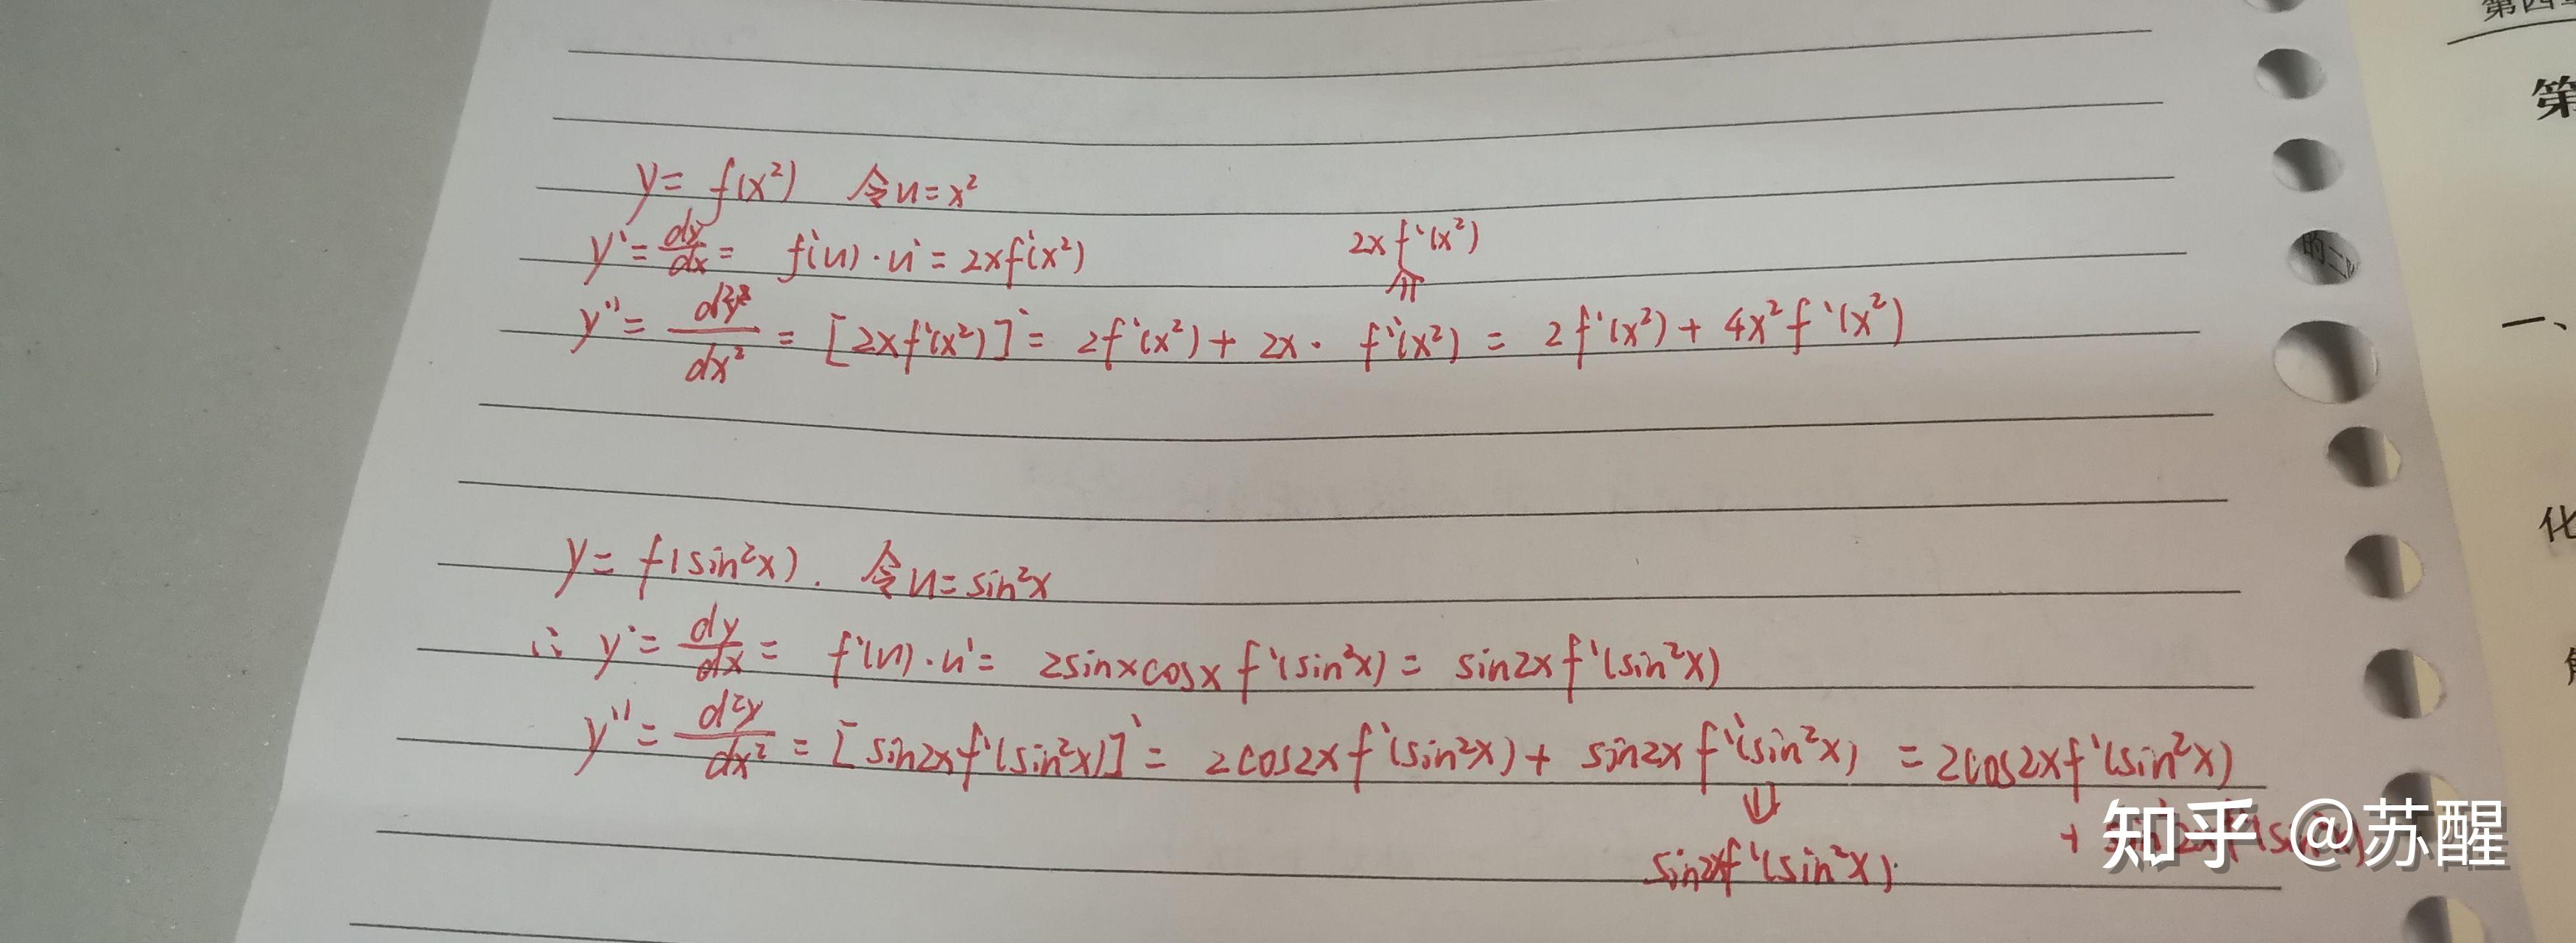 第四
第
y = f(x²) 令u=x²
y' = dy/dx = f'(u)·u' = 2xf'(x²)
2xf'(x²)
的二
⇑
y'' = d²y/dx² = [2xf'(x²)]' = 2f'(x²) + 2x· f'(x²) = 2f'(x²) + 4x²f'(x²)
一、
化
y = f(sin²x). 令u=sin²x
∴ y' = dy/dx = f'(u)·u' = 2sinxcosx f'(sin²x) = sin2xf'(sin²x)
y'' = d²y/dx² = [sin2xf'(sin²x)]' = 2cos2xf'(sin²x) + sin2xf'(sin²x) = 2cos2xf'(sin²x)
⇓
+ sin²2xf'(sin²x)
sin2xf'(sin²x).
知乎 @苏醒